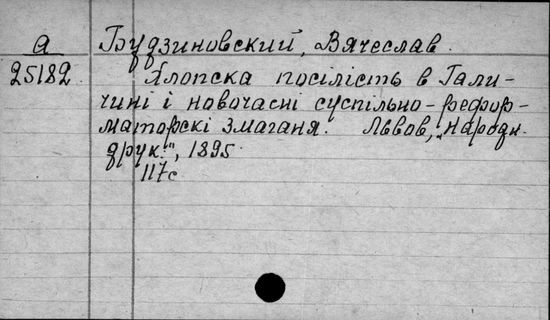 а Будзиновский, Вячеслав.
25182 Хлопска посілість в Гали-
чині і новочасні суспільно-рефор-
маторскі змаганя. Львов, „Народн.
друк.", 1895.
117с